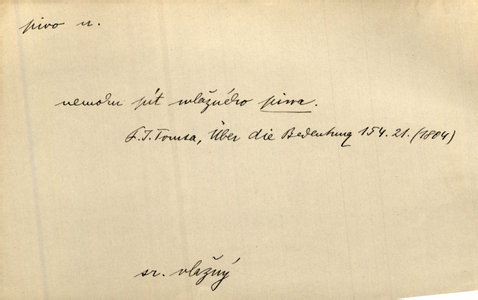 pivo n.
nemohu pít vlažného piva.
F. J. Tomsa, Über die Bedeutung 154. 21. (1804)
sr. vlažný